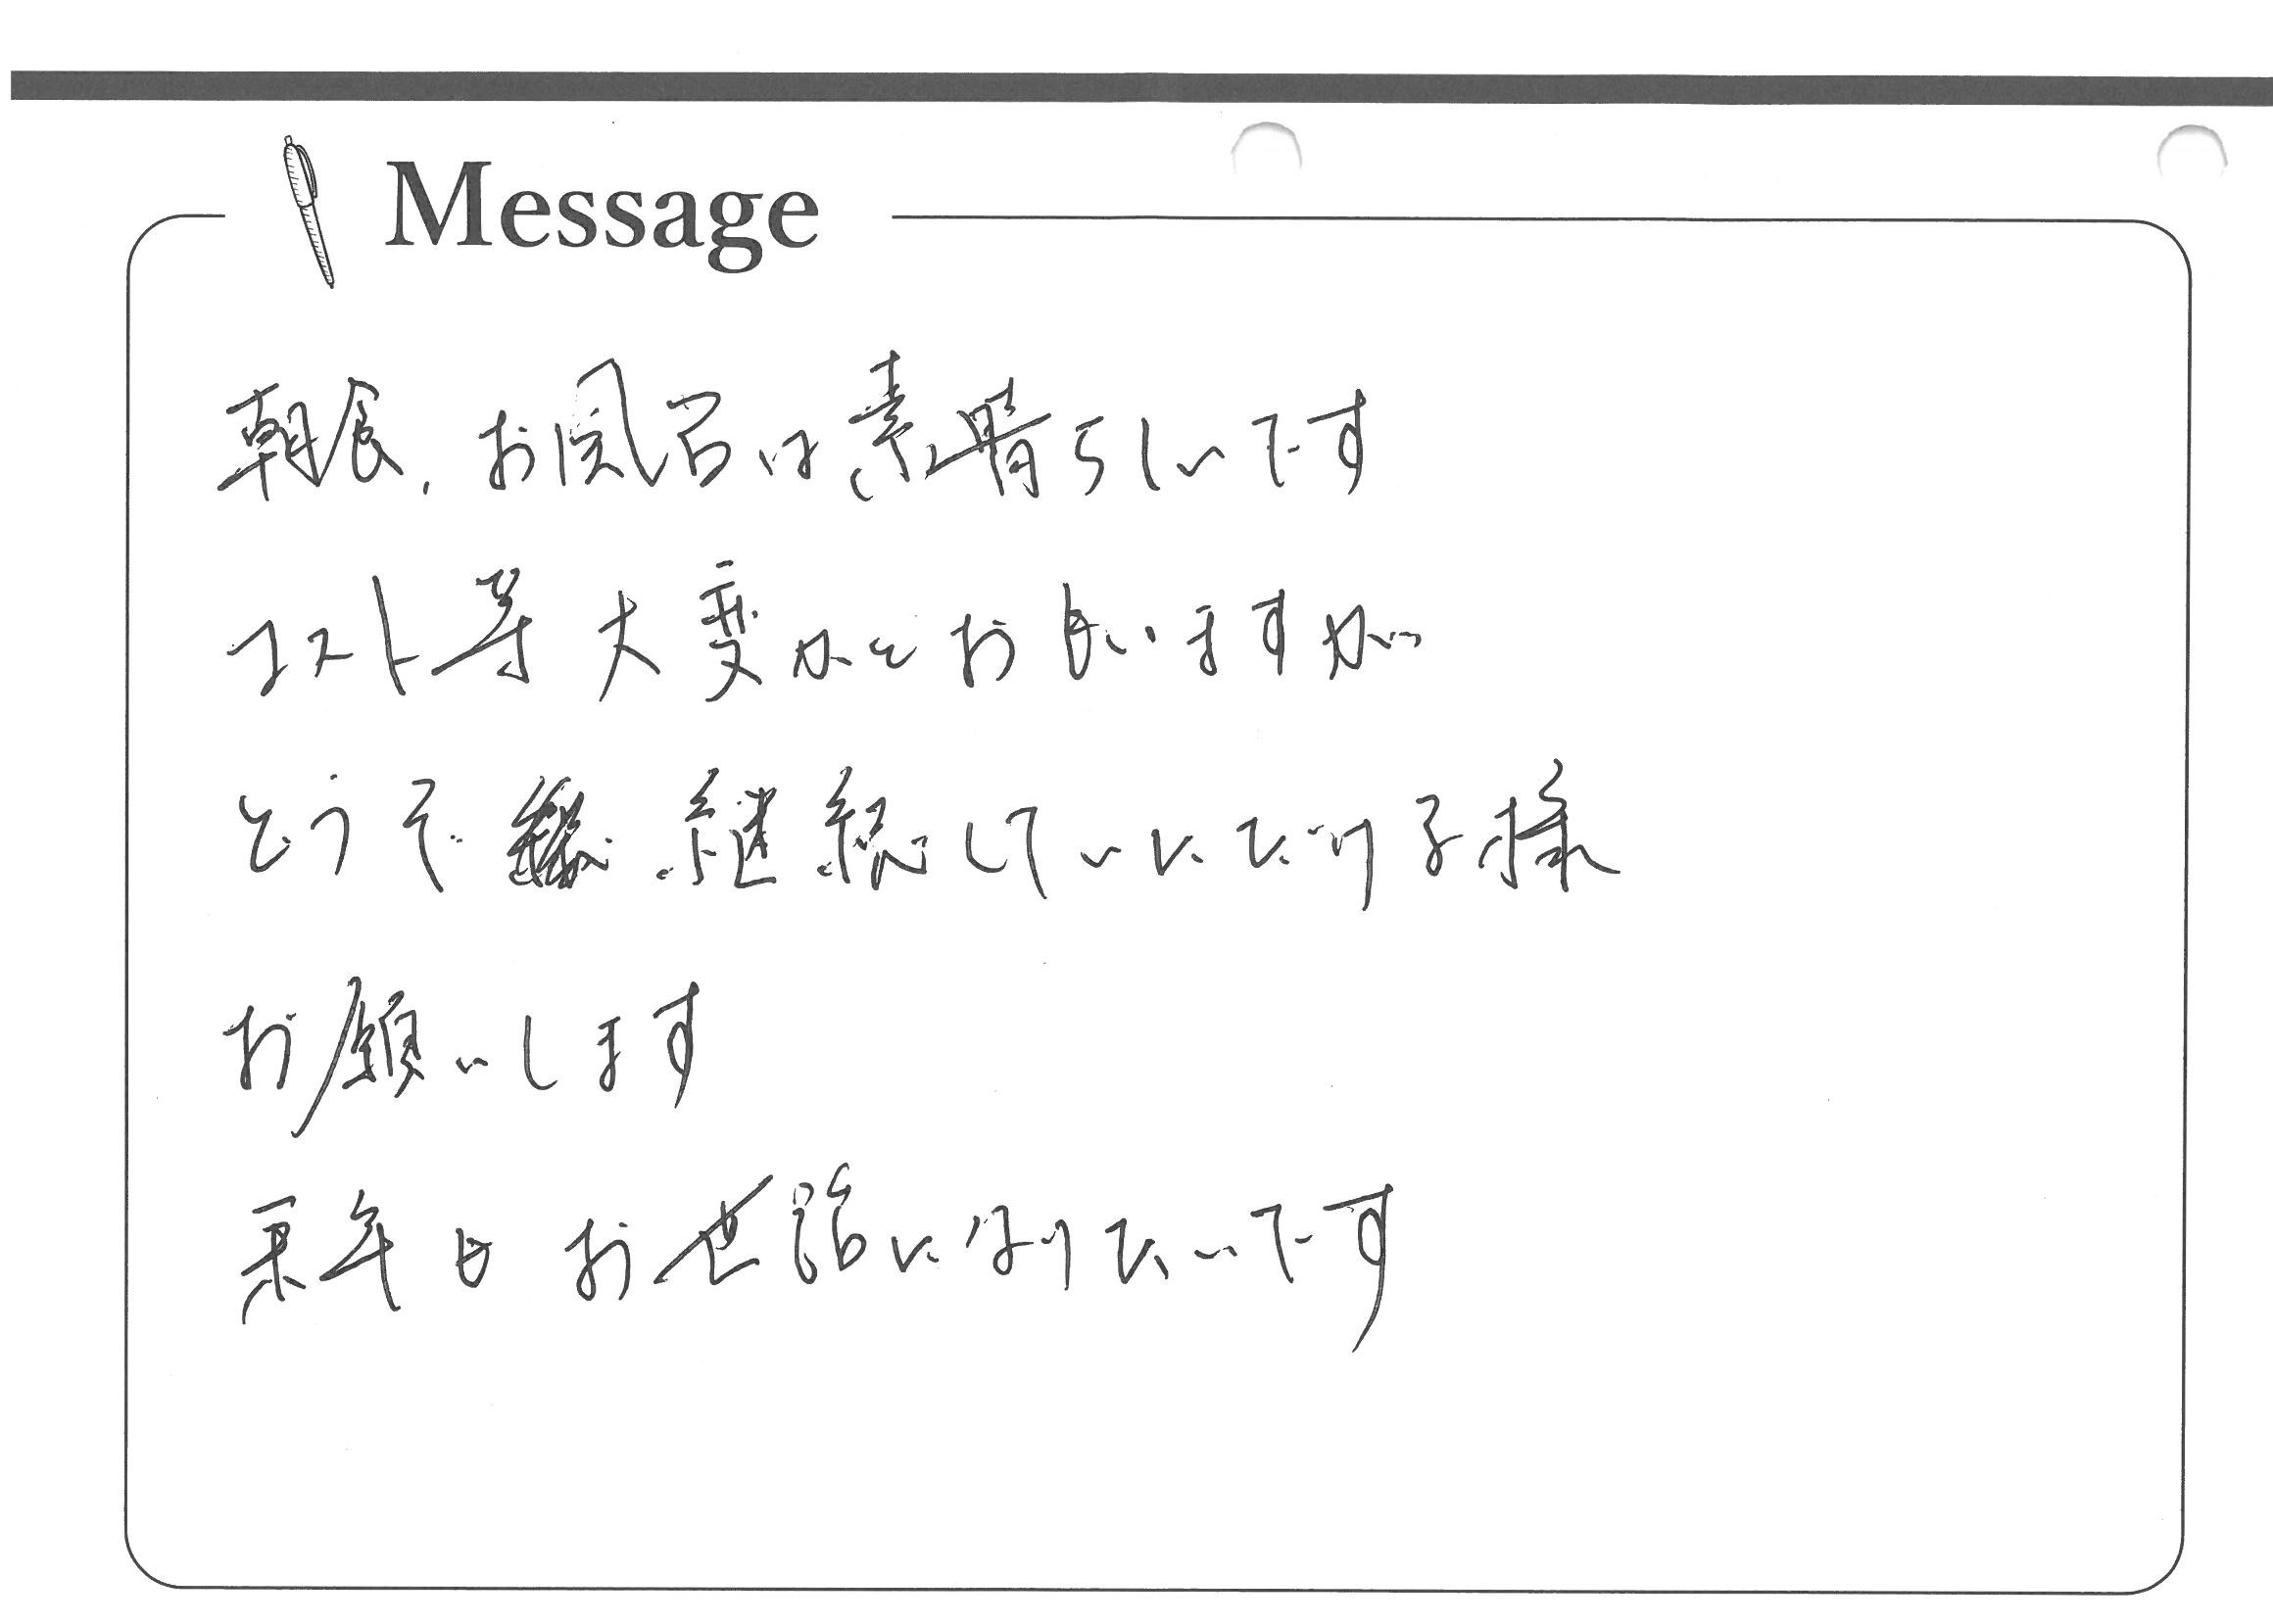 Message
朝食、お風呂は素晴らしいです
コスト等大変かとお思いますが
どうぞ継続していただける様
お願いします
来年もお世話になりたいです